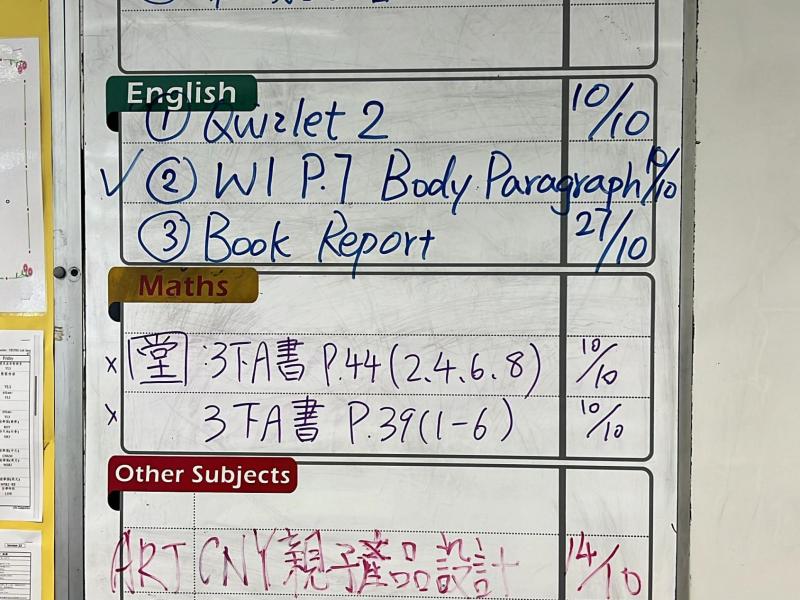 English
① Quizlet 2 10/10
✓ ② W1 P.7 Body Paragraph 10/10
③ Book Report 27/10
Maths
x 堂 :3下A書 P.44(2.4.6.8) 10/10
x 3下A書 P.39(1-6) 10/10
Other Subjects
ART CNY親子產品設計 14/10